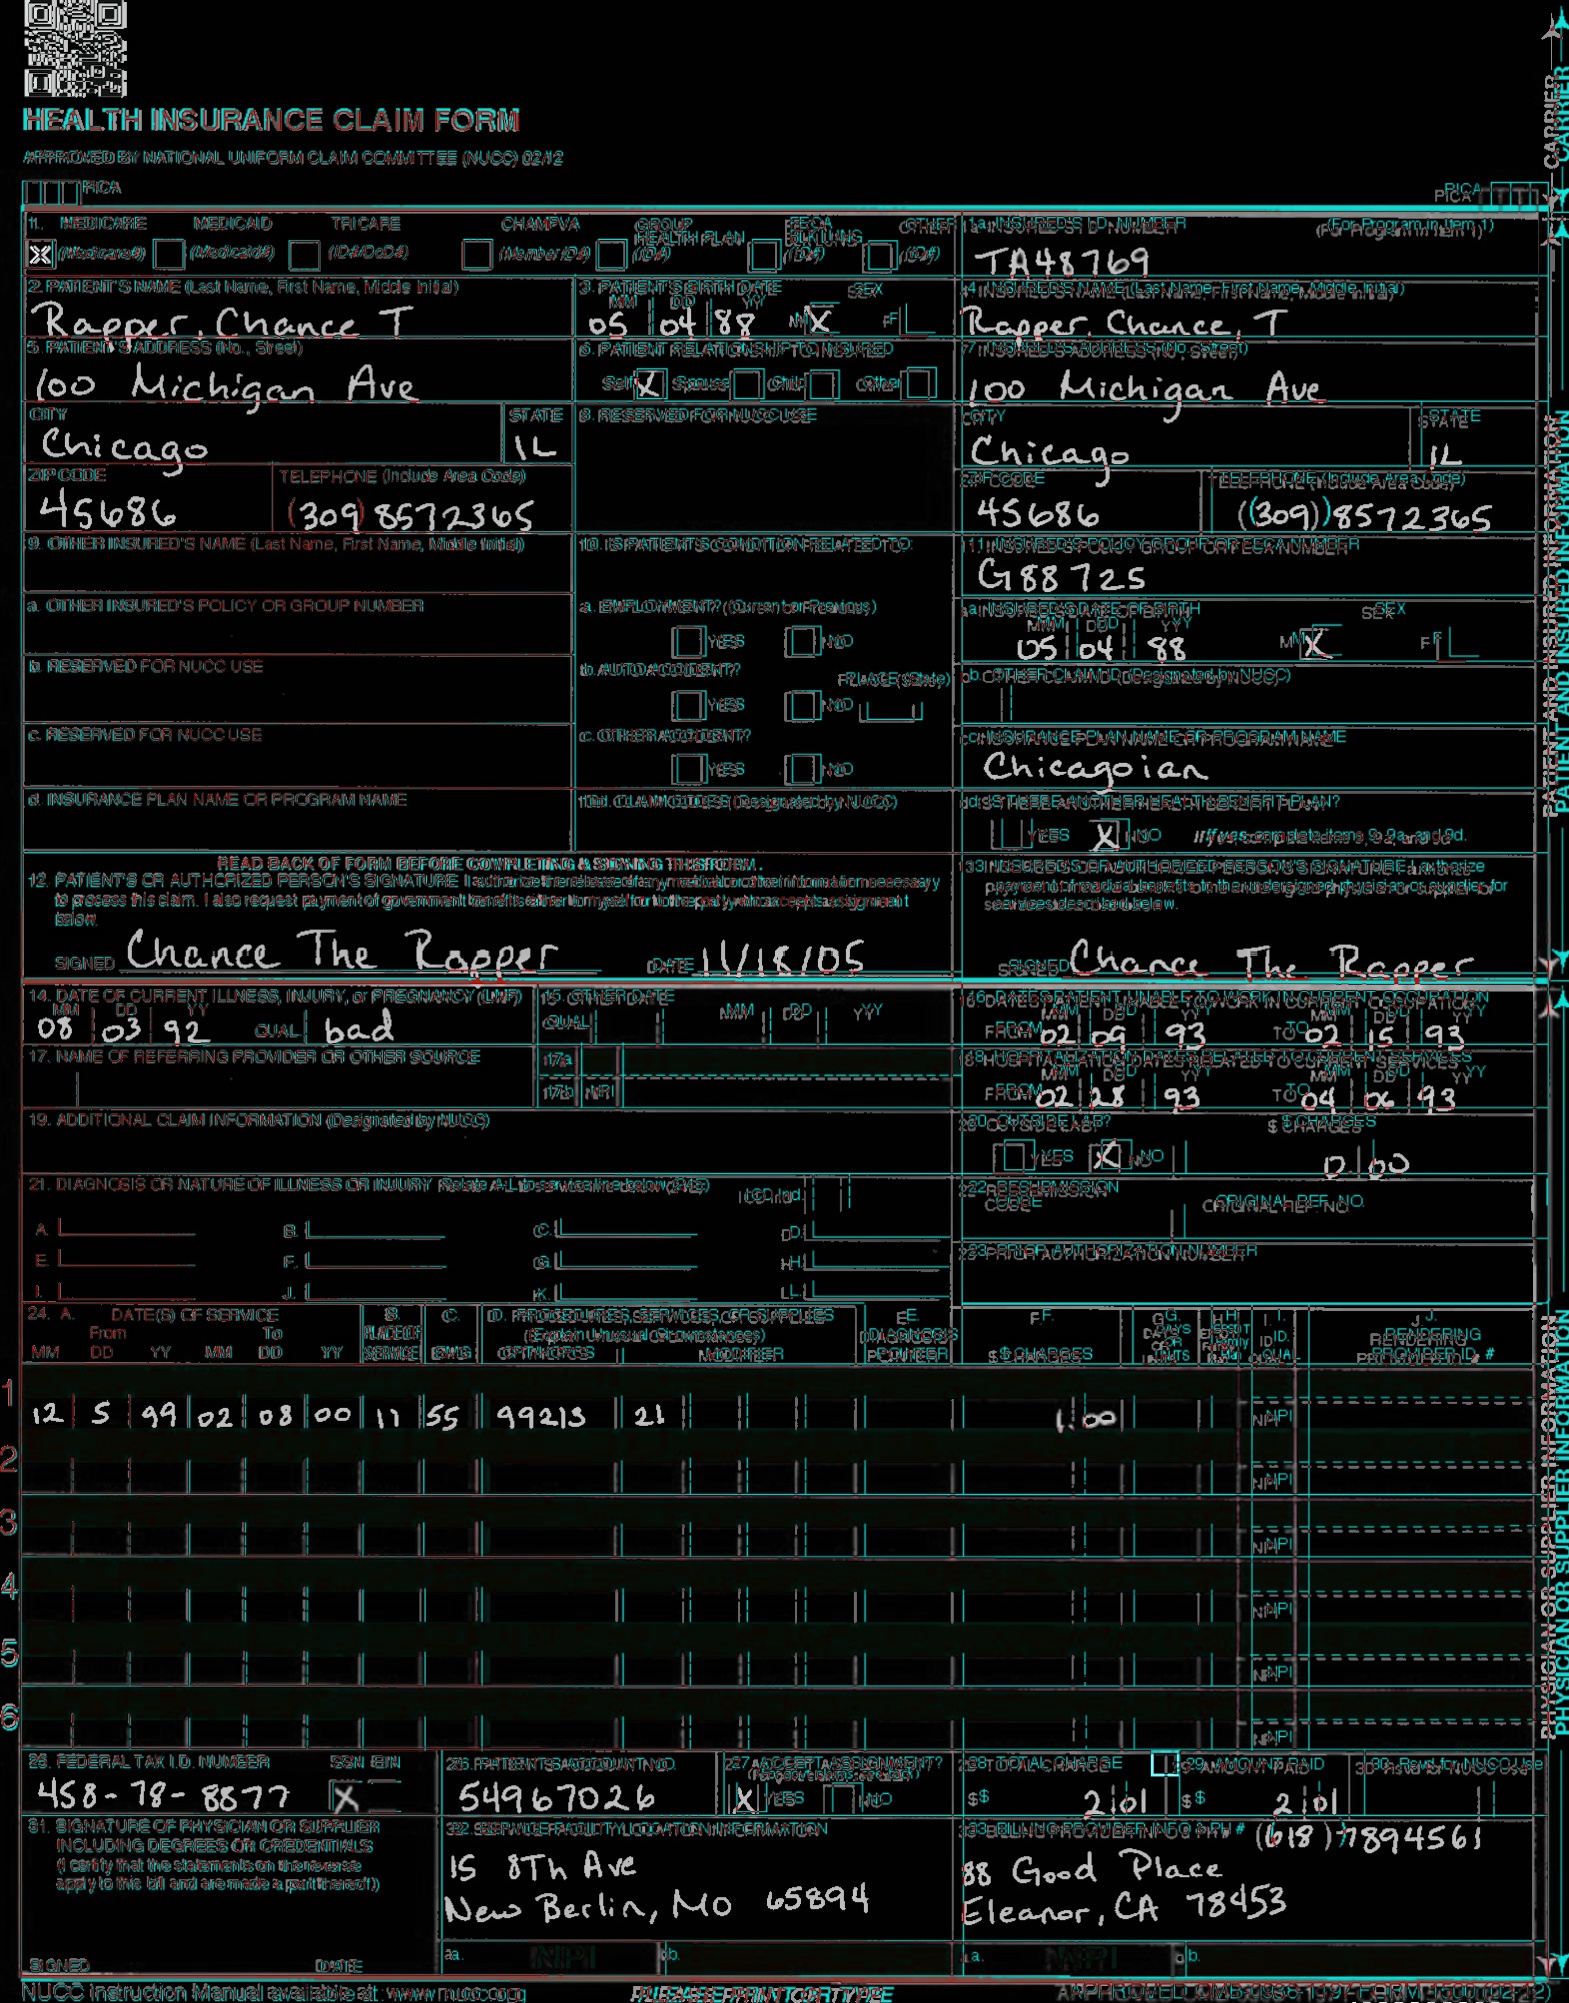 HEALTH INSURANCE CLAIM FORM
APPROVED BY NATIONAL UNIFORM CLAIM COMMITTEE (NUCC) 02/12
PICA
PICA
CARRIER
1. MEDICARE MEDICAID TRICARE CHAMPVA GROUP HEALTH PLAN FECA BLK LUNG OTHER
X (Medicare#) (Medicaid#) (ID#/DoD#) (Member ID#) (ID#) (ID#) (ID#)
1a. INSURED'S I.D. NUMBER (For Program in Item 1)
TA48769
2. PATIENT'S NAME (Last Name, First Name, Middle Initial)
Rapper, Chance T
3. PATIENT'S BIRTH DATE SEX
MM DD YY
05 04 88 M X F
4. INSURED'S NAME (Last Name, First Name, Middle Initial)
Rapper, Chance, T
5. PATIENT'S ADDRESS (No., Street)
100 Michigan Ave
6. PATIENT RELATIONSHIP TO INSURED
Self X Spouse Child Other
7. INSURED'S ADDRESS (No., Street)
100 Michigan Ave
CITY STATE
Chicago IL
8. RESERVED FOR NUCC USE
CITY STATE
Chicago IL
ZIP CODE TELEPHONE (Include Area Code)
45686 (309) 8572365
ZIP CODE TELEPHONE (Include Area Code)
45686 (309) 8572365
9. OTHER INSURED'S NAME (Last Name, First Name, Middle Initial)
10. IS PATIENT'S CONDITION RELATED TO:
11. INSURED'S POLICY GROUP OR FECA NUMBER
G88725
a. OTHER INSURED'S POLICY OR GROUP NUMBER
a. EMPLOYMENT? (Current or Previous)
YES NO
a. INSURED'S DATE OF BIRTH SEX
MM DD YY
05 04 88 M X F
b. RESERVED FOR NUCC USE
b. AUTO ACCIDENT? PLACE (State)
YES NO
b. OTHER CLAIM ID (Designated by NUCC)
c. RESERVED FOR NUCC USE
c. OTHER ACCIDENT?
YES NO
c. INSURANCE PLAN NAME OR PROGRAM NAME
Chicagoian
d. INSURANCE PLAN NAME OR PROGRAM NAME
10d. CLAIM CODES (Designated by NUCC)
d. IS THERE ANOTHER HEALTH BENEFIT PLAN?
YES X NO If yes, complete items 9, 9a, and 9d.
READ BACK OF FORM BEFORE COMPLETING & SIGNING THIS FORM.
12. PATIENT'S OR AUTHORIZED PERSON'S SIGNATURE I authorize the release of any medical or other information necessary
to process this claim. I also request payment of government benefits either to myself or to the party who accepts assignment
below.
SIGNED Chance The Rapper DATE 11/18/05
13. INSURED'S OR AUTHORIZED PERSON'S SIGNATURE I authorize
payment of medical benefits to the undersigned physician or supplier for
services described below.
SIGNED Chance The Rapper
PATIENT AND INSURED INFORMATION
14. DATE OF CURRENT ILLNESS, INJURY, or PREGNANCY (LMP)
MM DD YY
08 03 92 QUAL bad
15. OTHER DATE
QUAL MM DD YY
16. DATES PATIENT UNABLE TO WORK IN CURRENT OCCUPATION
MM DD YY MM DD YY
FROM 02 09 93 TO 02 15 93
17. NAME OF REFERRING PROVIDER OR OTHER SOURCE
17a
17b NPI
18. HOSPITALIZATION DATES RELATED TO CURRENT SERVICES
MM DD YY MM DD YY
FROM 02 28 93 TO 04 06 93
19. ADDITIONAL CLAIM INFORMATION (Designated by NUCC)
20. OUTSIDE LAB? $ CHARGES
YES X NO
21. DIAGNOSIS OR NATURE OF ILLNESS OR INJURY Relate A-L to service line below (24E) ICD Ind.
A. B. C. D.
E. F. G. H.
I. J. K. L.
22. RESUBMISSION CODE ORIGINAL REF. NO.
23. PRIOR AUTHORIZATION NUMBER
24. A. DATE(S) OF SERVICE B. C. D. PROCEDURES, SERVICES, OR SUPPLIES E. F. G. H. I. J.
From To PLACE OF (Explain Unusual Circumstances) DIAGNOSIS DAYS OR EPSDT ID. RENDERING
MM DD YY MM DD YY SERVICE EMG CPT/HCPCS MODIFIER POINTER $ CHARGES UNITS QUAL PROVIDER ID. #
1 12 5 99 02 08 00 11 55 99213 21 1 00 NPI
2 NPI
3 NPI
4 NPI
5 NPI
6 NPI
PHYSICIAN OR SUPPLIER INFORMATION
25. FEDERAL TAX I.D. NUMBER SSN EIN
458-78-8877 X
26. PATIENT'S ACCOUNT NO.
54967026
27. ACCEPT ASSIGNMENT?
X YES NO
28. TOTAL CHARGE
$ 2 01
29. AMOUNT PAID
$ 2 01
30. Rsvd for NUCC Use
31. SIGNATURE OF PHYSICIAN OR SUPPLIER
INCLUDING DEGREES OR CREDENTIALS
(I certify that the statements on the reverse
apply to this bill and are made a part thereof.)
SIGNED DATE
32. SERVICE FACILITY LOCATION INFORMATION
15 8Th Ave
New Berlin, MO 65894
a. NPI b.
33. BILLING PROVIDER INFO & PH # (618) 7894561
88 Good Place
Eleanor, CA 78453
a. NPI b.
NUCC Instruction Manual available at: www.nucc.org
PLEASE PRINT OR TYPE